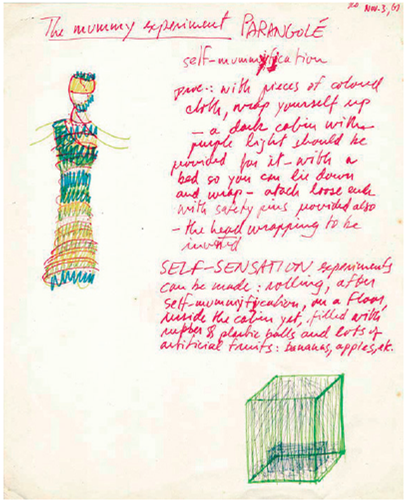 Nov. 3, 67
The mummy experiment PARANGOLÉ
self-mummyfication
proc.: with pieces of colored
cloth, wrap yourself up
– a dark cabin with
purple light should be
provided for it – with a
bed so you can lie down
and wrap – atach loose ends
with safety pins provided also
– the head wrapping to be
invented
SELF-SENSATION experiments
can be made: rolling, after
self-mummyfication, on a floor,
inside the cabin yet, filled with
rubber & plastic balls and lots of
artificial fruits: bananas, apples, etc.